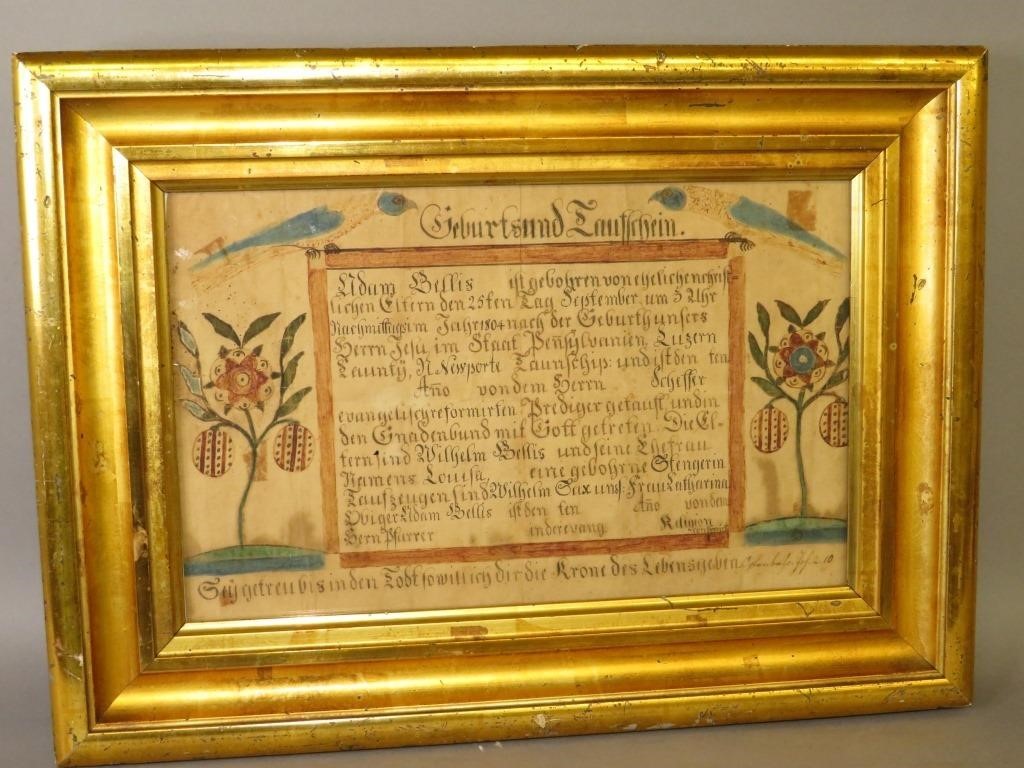 Geburts und Taufschein.
Adam Bellis ist gebohren von ehelichen christ-
lichen Eltern den 25ten Tag September, um 3 Uhr
Nachmittags im Jahr 1804 nach der Geburth unsers
Herrn Jesu, im Staat Penñsylvanien, Luzern
Caunty, N. Newporte Taunschip: und ist den ten
Año von dem Herrn Scheffer
evangelisch reformirten Prediger getauft, und in
den Gnadenbund mit Gott getreten. Die El-
tern sind Wilhelm Bellis und seine Ehefrau
Namens Louisa, eine gebohrne Stengerin
Taufzeugen sind Wilhelm Sax uns: Frau Catharina
Obiger Adam Bellis ist den ten Año von dem
Hern Pfarrer in der evang. Religion
Sey getreu bis in den Todt so will ich dir die Krone des Lebens geben. 10